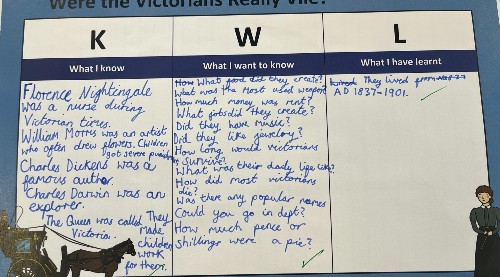 Were the Victorians Really Vile?
K
W
L
What I know
What I want to know
What I have learnt
Florence Nightingale
was a nurse during
Victorian times.
William Morris was an artist
who often drew flowers. Children
got severe
Charles Dickens was a
famous author.
Charles Darwin was an
explorer.
The Queen was called
Victoria.
They
made
children
work
for them.
How What food did they create?
What was the most used weapon
How much money was rent?
What jobs did they create?
Did they have music?
Did they like jewelory?
How long would victorians
survive?
What was their daily life like?
How did most victorians
die?
Was there any popular names
Could you go in dept?
How much pence or
shillings were a pie?
They lived from
AD 1837-1901.